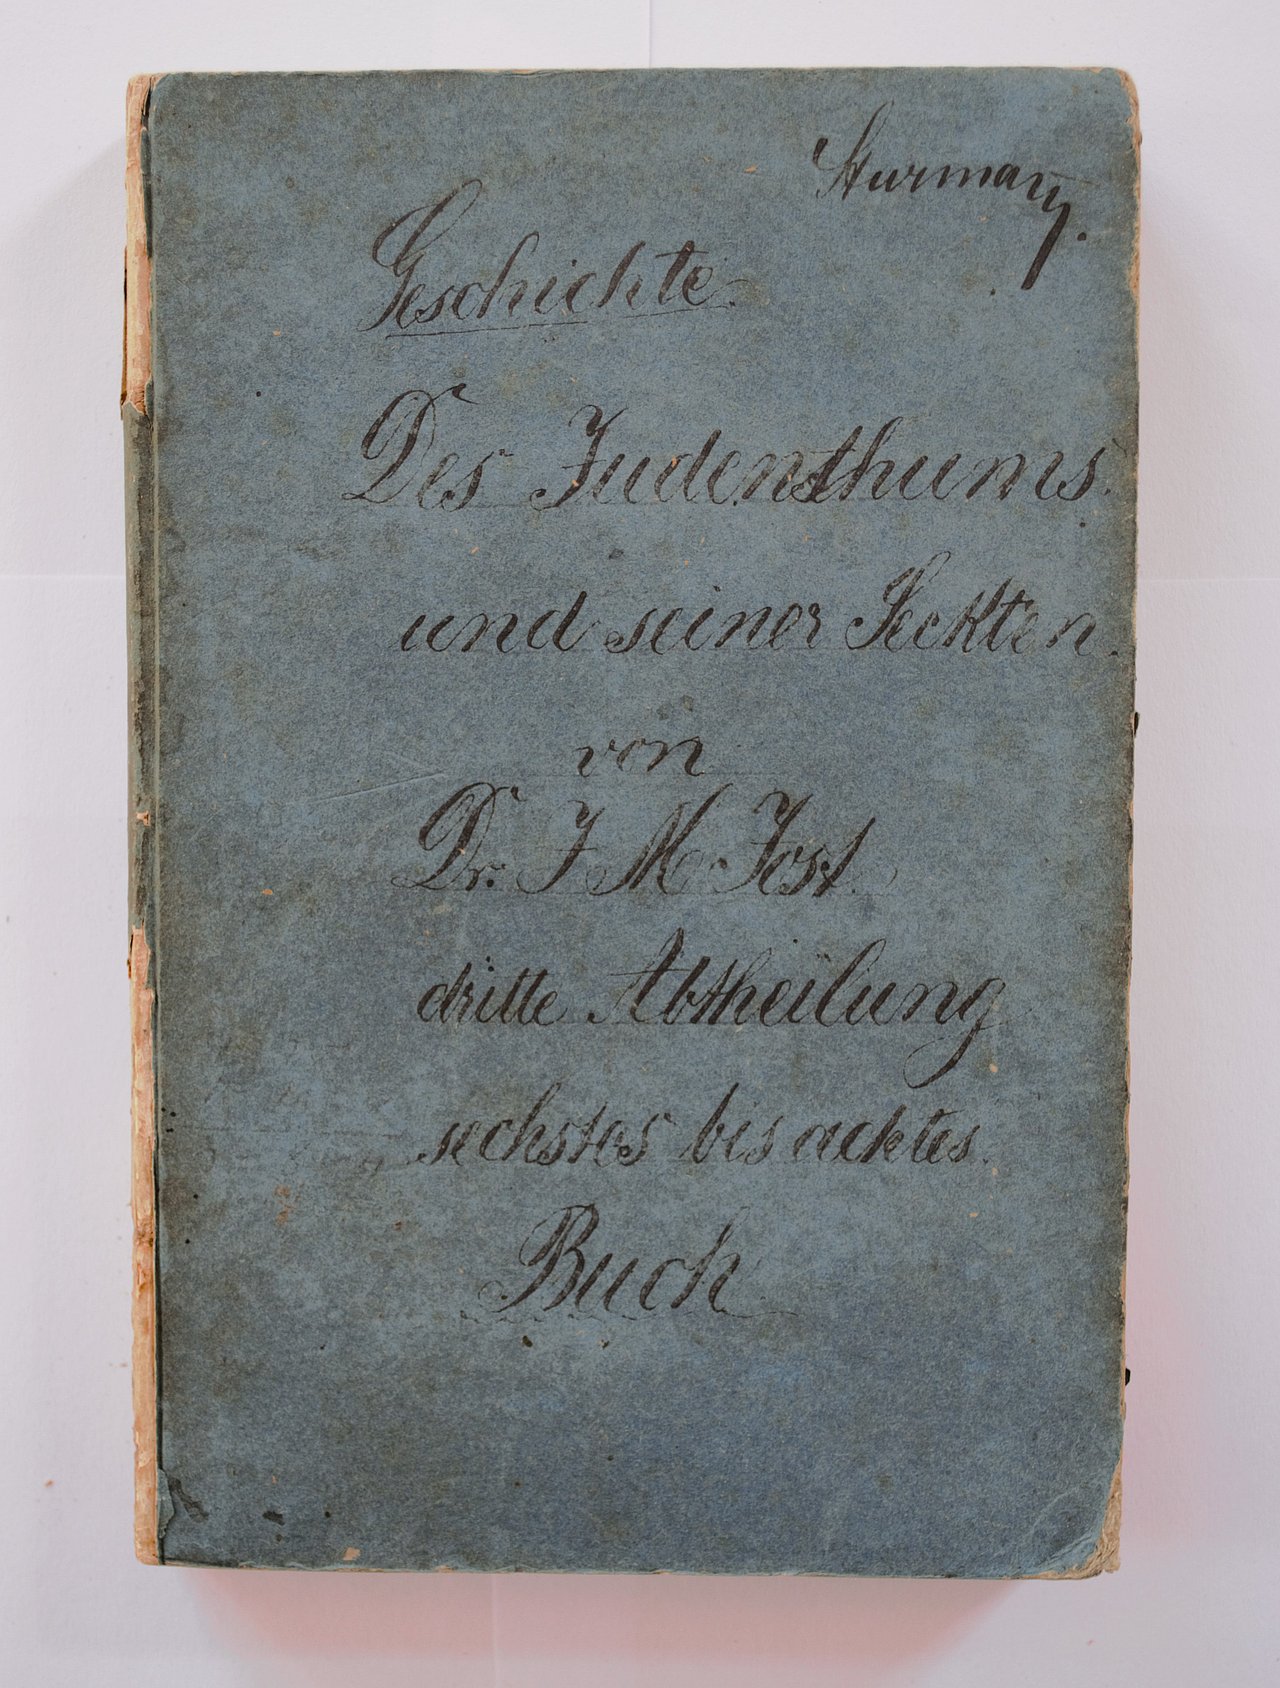 Sturmann
Geschichte
Des Judenthums
und seiner Seckten
von
Dr. J M Jost
dritte Abtheilung
sechstes bis achtes
Buch